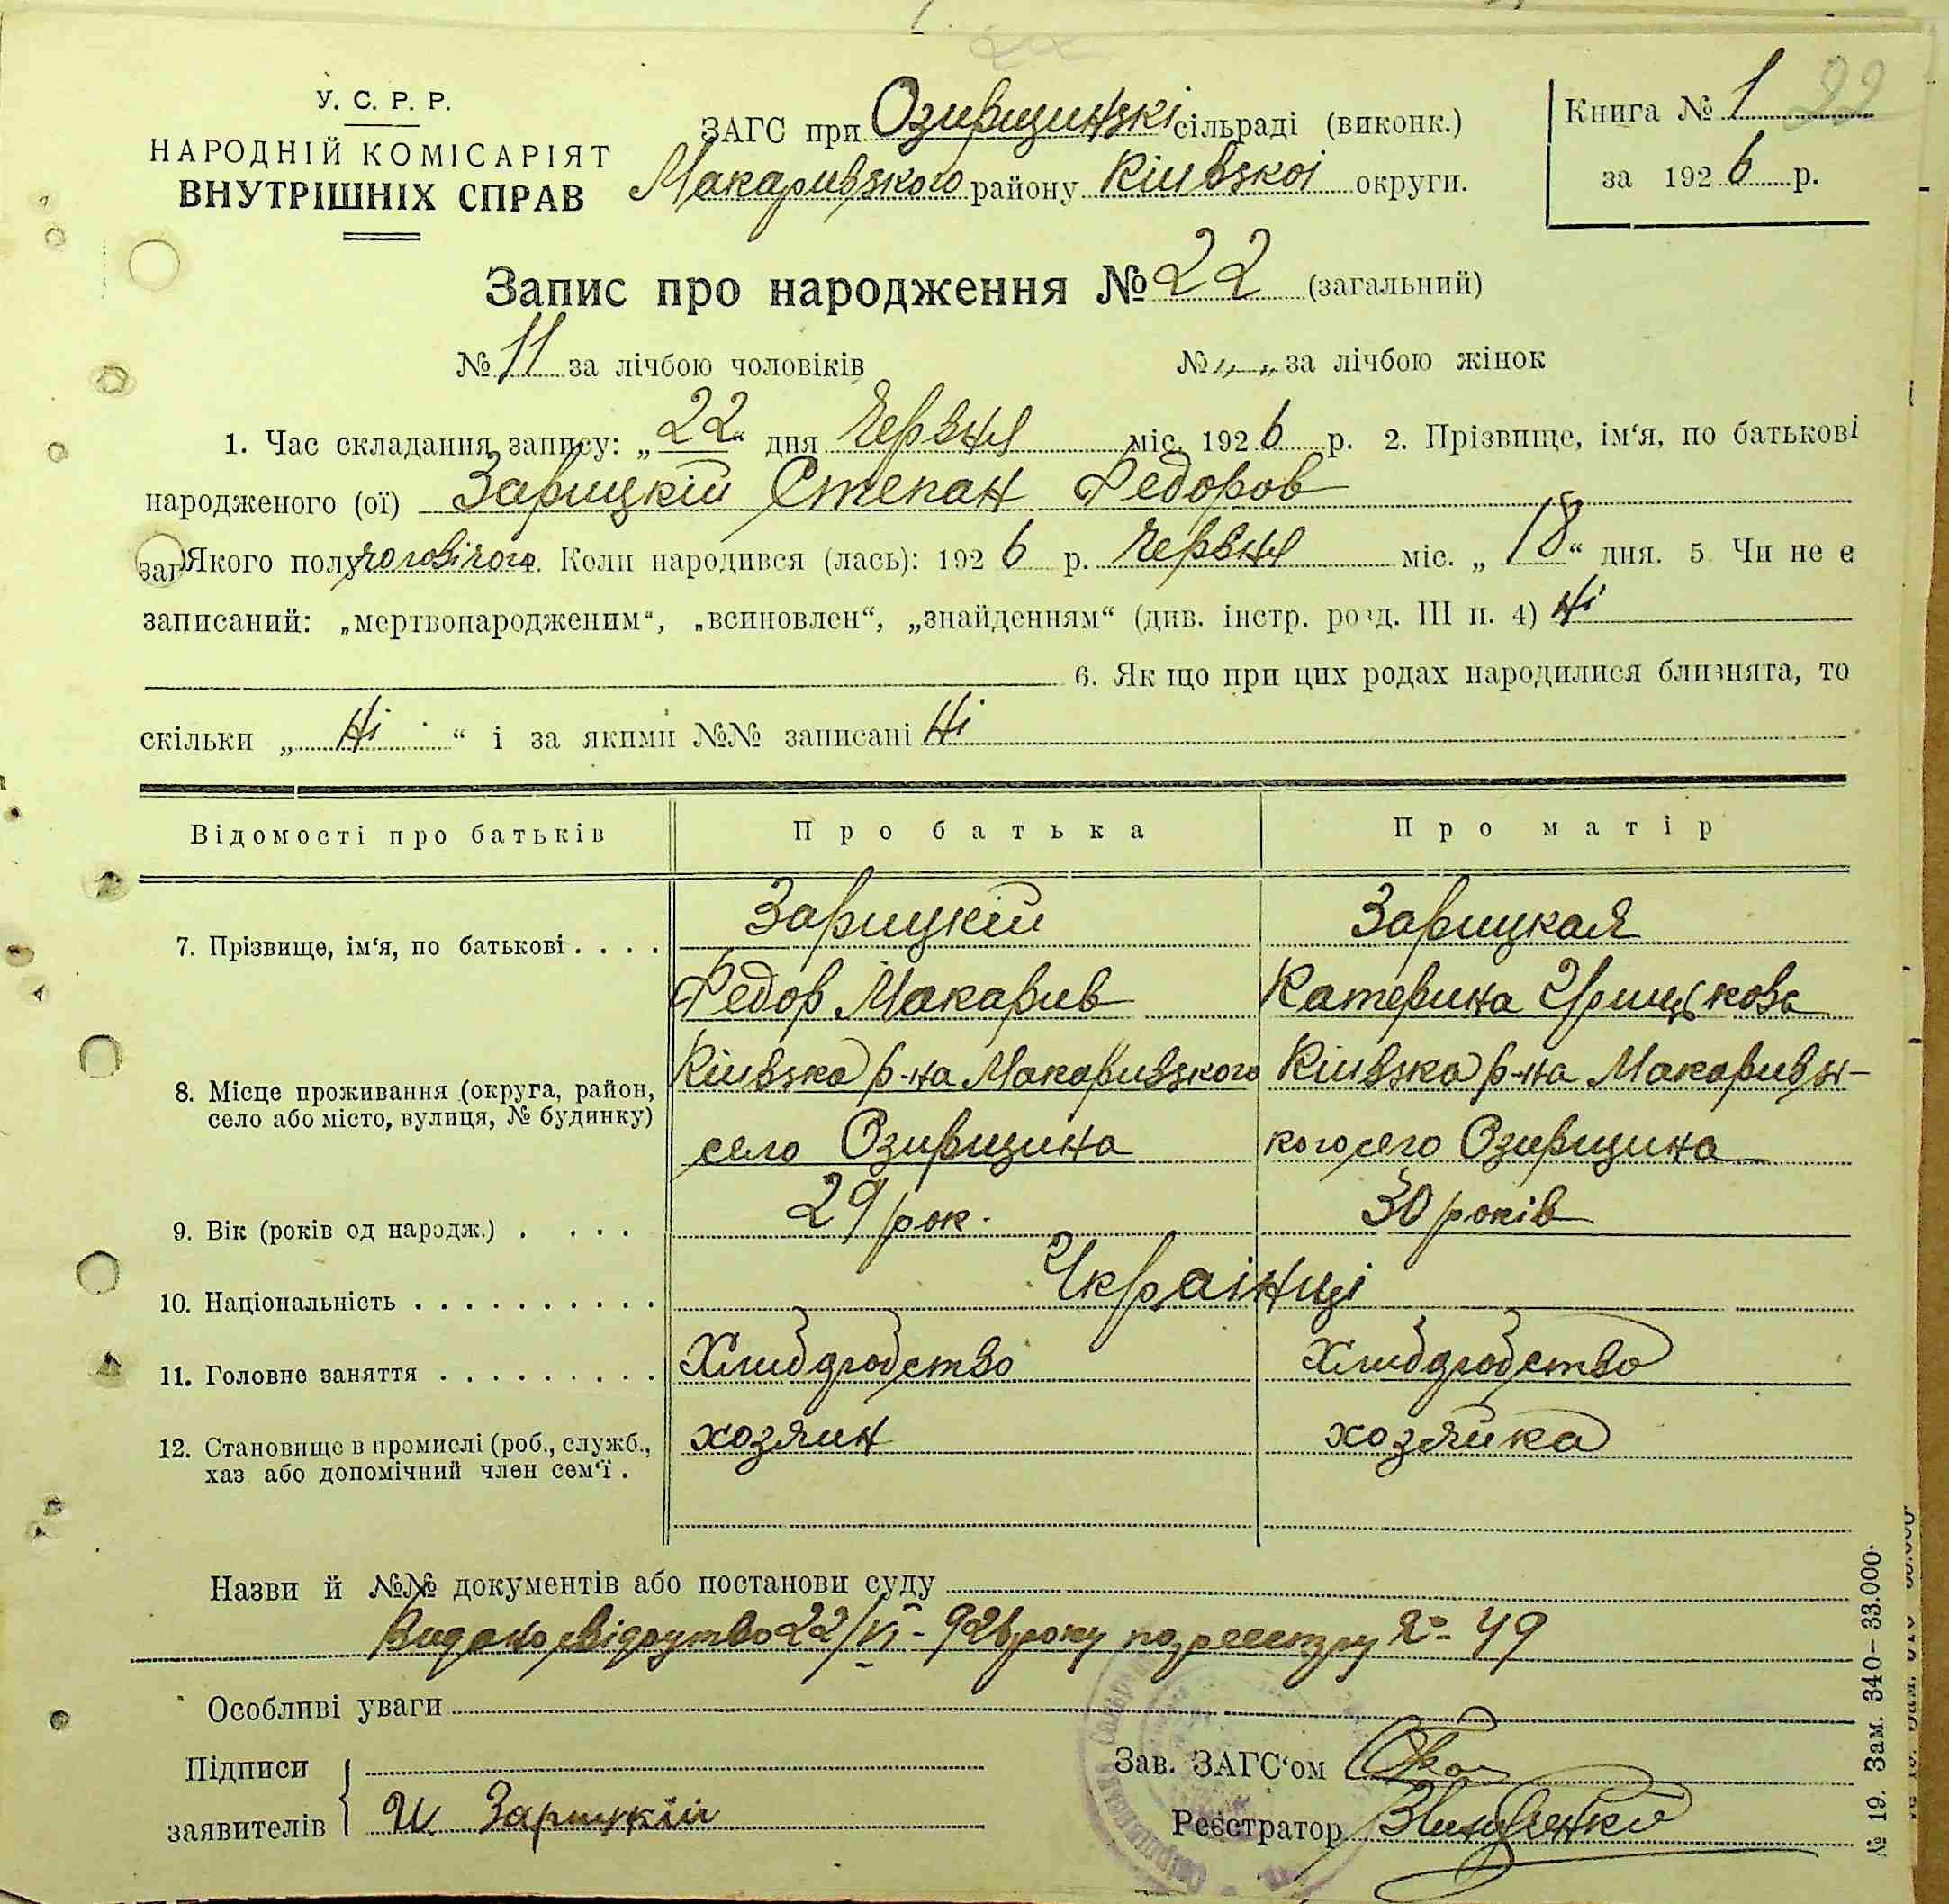 У. С. Р. Р.
НАРОДНІЙ КОМІСАРІЯТ
ВНУТРІШНІХ СПРАВ
ЗАГС при Озирщинзкі сільраді (виконк.)
Макаривзкого району Кіивзкоі округи.
Книга № 1 22
за 1926 р.
Запис про народження № 22 (загальний)
№ 11 за лічбою чоловіків № „—„ за лічбою жінок
1. Час складання запису: „22“ дня Червня міс. 1926 р. 2. Прізвище, ім‘я, по батькові
народженого (ої) Зарицкій Степан Федоров
Якого полу чоловічого. Коли народився (лась): 1926 р. Червня міс. „18“ дня. 5. Чи не є
записаний: „мертвонародженим“, „всиновлен“, „знайденням“ (див. інстр. розд. III п. 4) Ні
6. Як що при цих родах народилися близнята, то
скільки „Ні“ і за якими №№ записані Ні
Відомості про батьків Про батька Про матір
7. Прізвище, ім‘я, по батькові . . . . Зарицкій Зарицкая
Федор Макарив Катерина
8. Місце проживання (округа, район, село або місто, вулиця, № будинку) Кіивзка р-на Макаривзкого Кіивзка р-на Макаривзь-
село Озирщина кого село Озирщина
9. Вік (років од народж.) . . . . 29 рок. 30 років
10. Національність . . . . . . . . . . Українці
11. Головне заняття . . . . . . . . . Хлибдробство Хлибдробство
12. Становище в промислі (роб., служб., хозяин хозяйка
хаз або допомічний член сем‘ї .
Назви й №№ документів або постанови суду
Видано свідоцтво 22/VI - 926 року по реестру № 49
Особливі уваги
Підписи
заявителів И. Зарицкий
Зав. ЗАГС‘ом
Реєстратор
№ 19. Зам. 340—33.000.